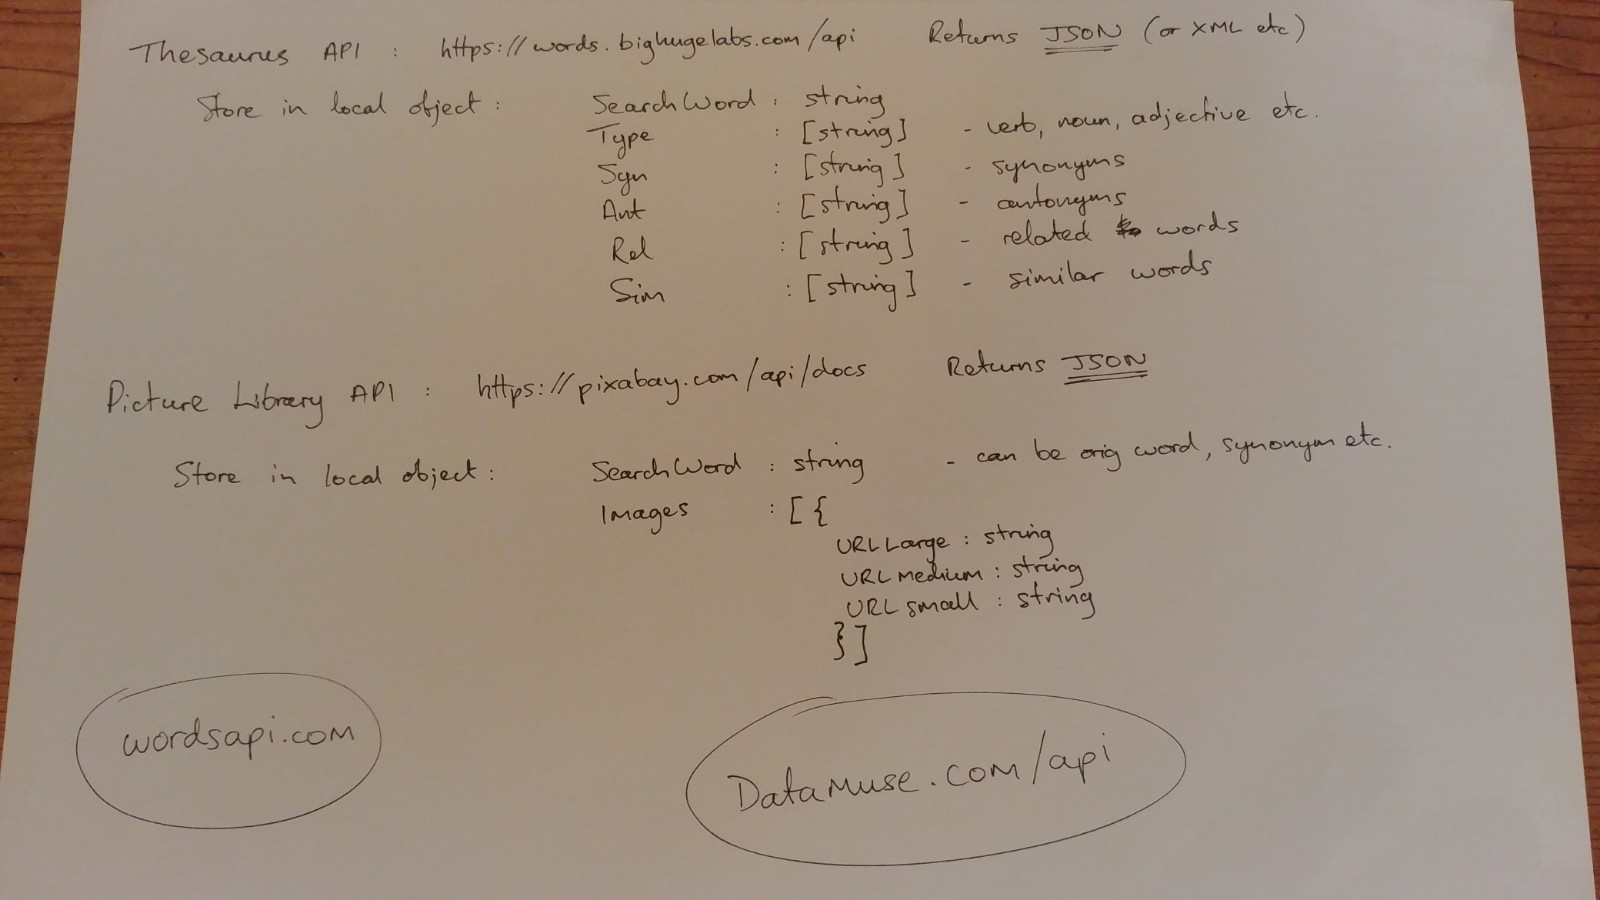 Thesaurus API : https://words.bighugelabs.com/api Returns JSON (or XML etc)
Store in local object : SearchWord : string
Type : [string] - verb, noun, adjective etc.
Syn : [string] - synonyms
Ant : [string] - antonyms
Rel : [string] - related words
Sim : [string] - similar words
Picture Library API : https://pixabay.com/api/docs Returns JSON
Store in local object : SearchWord : string - can be orig word, synonym etc.
Images : [{
URLLarge : string
URLmedium : string
URLsmall : string
}]
wordsapi.com
Datamuse.com/api